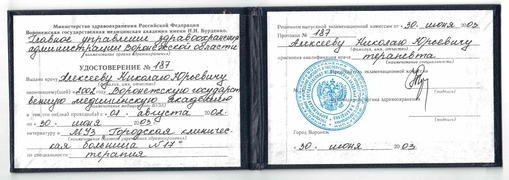 Министерство здравоохранения Российской Федерации
Воронежская государственная медицинская академия имени Н.Н. Бурденко.
Главное управление здравоохранения
администрации Воронежской области
УДОСТОВЕРЕНИЕ № 187
Выдано врачу Алексееву Николаю Юрьевичу
(фамилия, имя, отчество)
2002 году Воронежскую государст
венную медицинскую академию
(наименование ВУЗа)
в том, что он(она) проходил(а) с 01. августа 2002.
по 30. июня 2003.
МУЗ Городская клиничес
кая больница №17"
по специальности терапия
Решением выпускной экзаменационной комиссии от 30. июня 2003.
Протокол № 187
Алексееву Николаю Юрьевичу
(фамилия, имя, отчество)
присвоена квалификация врача терапевта
(наименование специальности)
экзаменационной комиссии
(подпись)
здравоохранения
(подпись)
Город Воронеж
30. июня 2003.